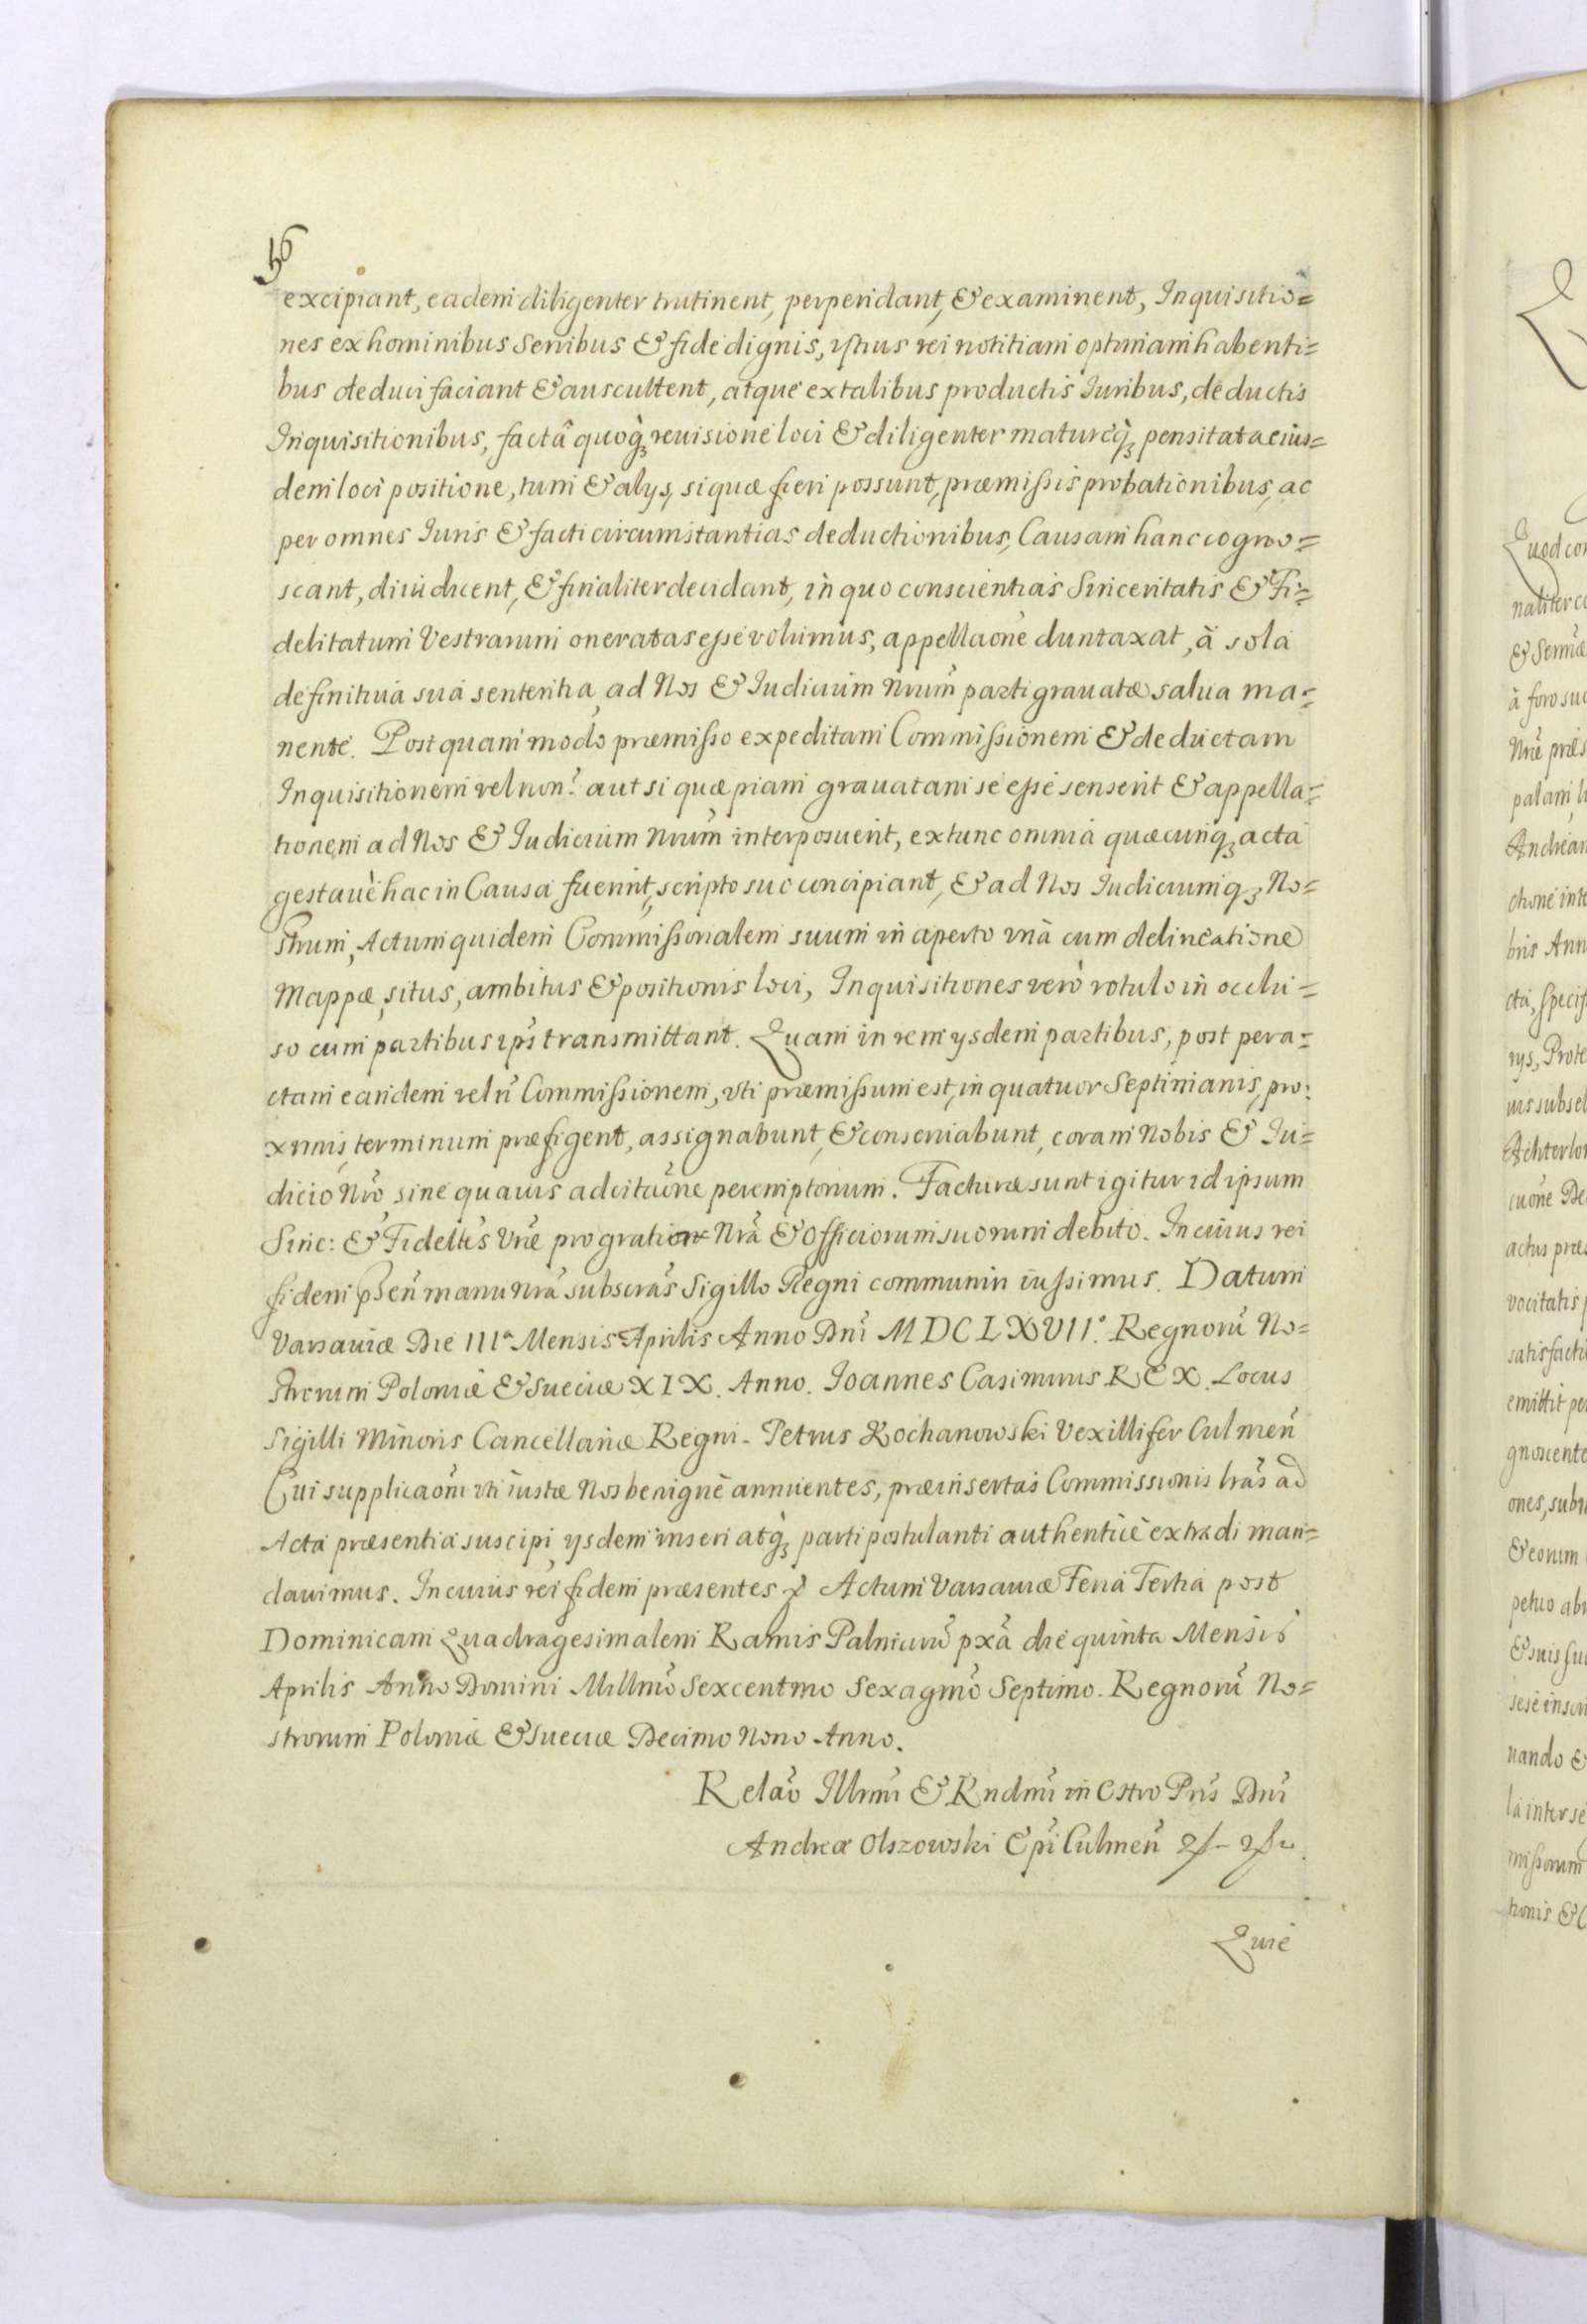 16
excipiant, eadem diligenter trutinent, perpendant, & examinent, Inquisitio=
nes ex hominibus senibus & fide dignis, istius rei notitiam optimam habenti=
bus deduci faciant & auscultent, atque ex talibus productis Iuribus, deductis
Inquisitionibus, factâ quoq₃ reuisione loci & diligenter matureq₃ pensitata eius=
dem loci positione, tum & alijs, si quæ fieri possunt, præmissis probationibus, ac
per omnes Iuris & facti circumstantias deductionibus, Causam hanc cogno=
scant, diiudicent, & finaliter decidant, in quo conscientias Sinceritatis & Fi=
delitatum Vestrarum oneratas esse volumus, appellaone duntaxat, à sola
definitiua sua sententia, ad Nos & Iudicium Nrum parti grauatæ salua ma=
nente. Postquam modo præmisso expeditam Commissionem & deductam
Inquisitionem vel non? aut si quæpiam grauatam se esse senserit & appella=
tionem ad Nos & Iudicium Nrum interposuerit, ex tunc omnia quæcunq₃ acta
gestauè hac in Causa fuerint, scripto suo concipiant, & ad Nos Iudiciumq₃ No=
strum, Actum quidem Commissionalem suum in aperto vnà cum delineatione
Mappæ, situs, ambitus & positionis loci, Inquisitiones verò rotulo in occlu=
so cum partibus ips̃ transmittant. Quam in rem ijsdem partibus, post pera=
ctam eandem vel ñ Commissionem, vti præmissum est, in quatuor Septimanis, pro:
ximis, terminum præfigent, assignabunt, & conseruabunt, coram Nobis & Iu=
dicio Nro, sine quauis adcitaone peremptorium. Facturæ sunt igitur id ipsum
Sinc: & Fidelits Vræ pro gratia Nra & Officiorum suorum debito. In cuius rei
fidem psen manu Nra subscras Sigillo Regni communiri iussimus. Datum
Varsauiæ Die IIIa Mensis Aprilis Anno Dni MDCLXVII°. Regnorũ No=
strorum Poloniæ & Sueciæ XIX. Anno. Ioannes Casimirus REX. Locus
Sigilli Minoris Cancellariæ Regni - Petrus Kochanowski Vexillifer Culmeñ
Cui supplicaoni vti iustæ Nos benignè annuentes, præinsertas Commissionis lras ad
Acta præsentia suscipi, ijsdem inseri atq₃ parti postulanti authenticè extradi man=
dauimus. In cuius rei fidem præsentes Actum Varsauiæ Feria Tertia post
Dominicam Quadragesimalem Ramis Palmarũ pxa die quinta Mensis
Aprilis Anno Domini Millmo Sexcentmo Sexagmo Septimo. Regnorũ No=
strorum Poloniæ & Sueciæ Decimo Nono Anno.
Relao Illmi & Rndmi in Chro Pris Dni
Andreæ Olszowski Epi Culmeñ
Quæ